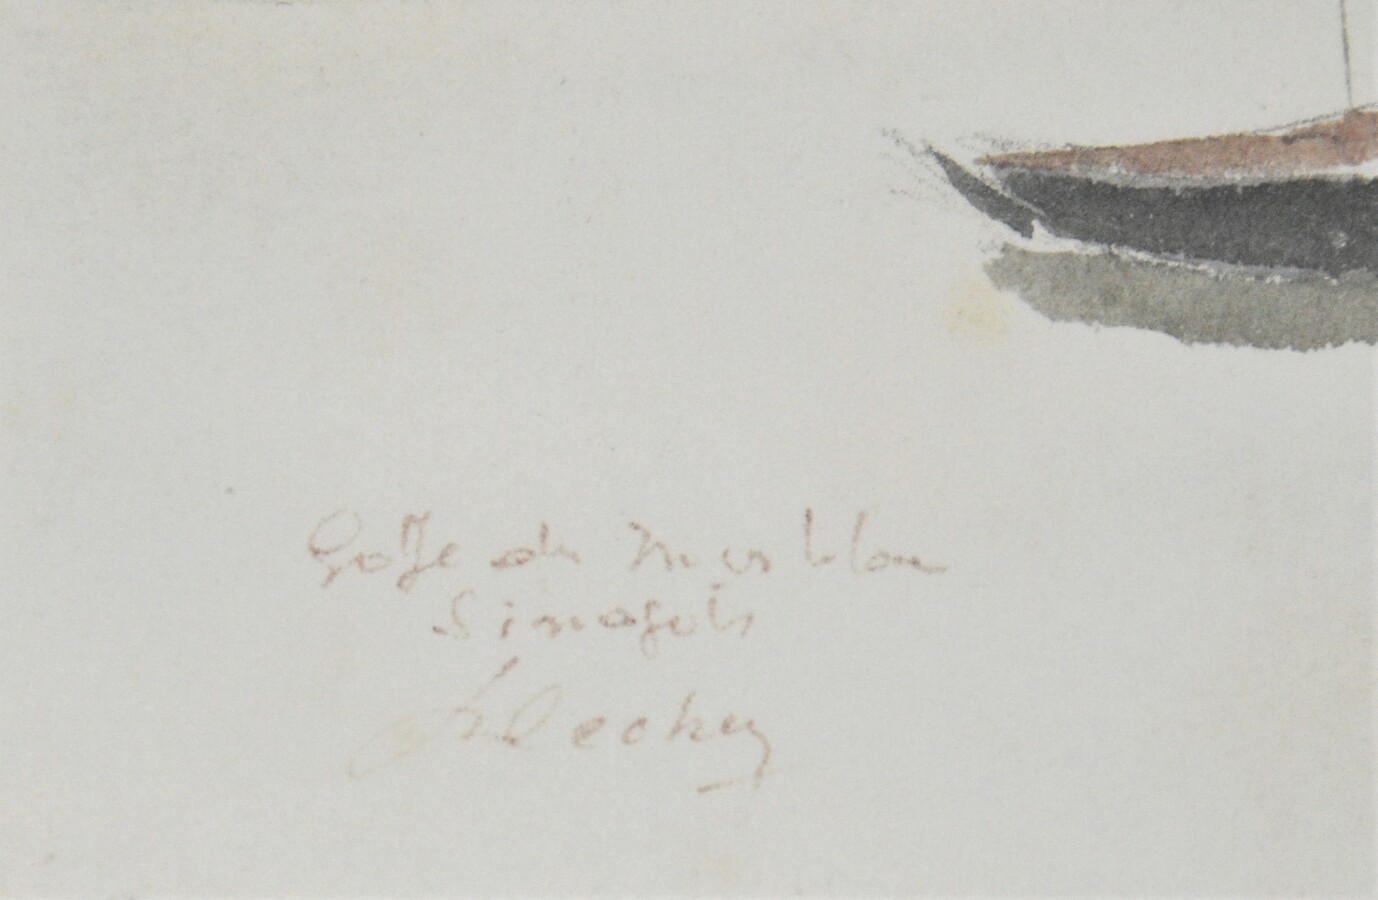 Golfe du Morbihan
Sinagots